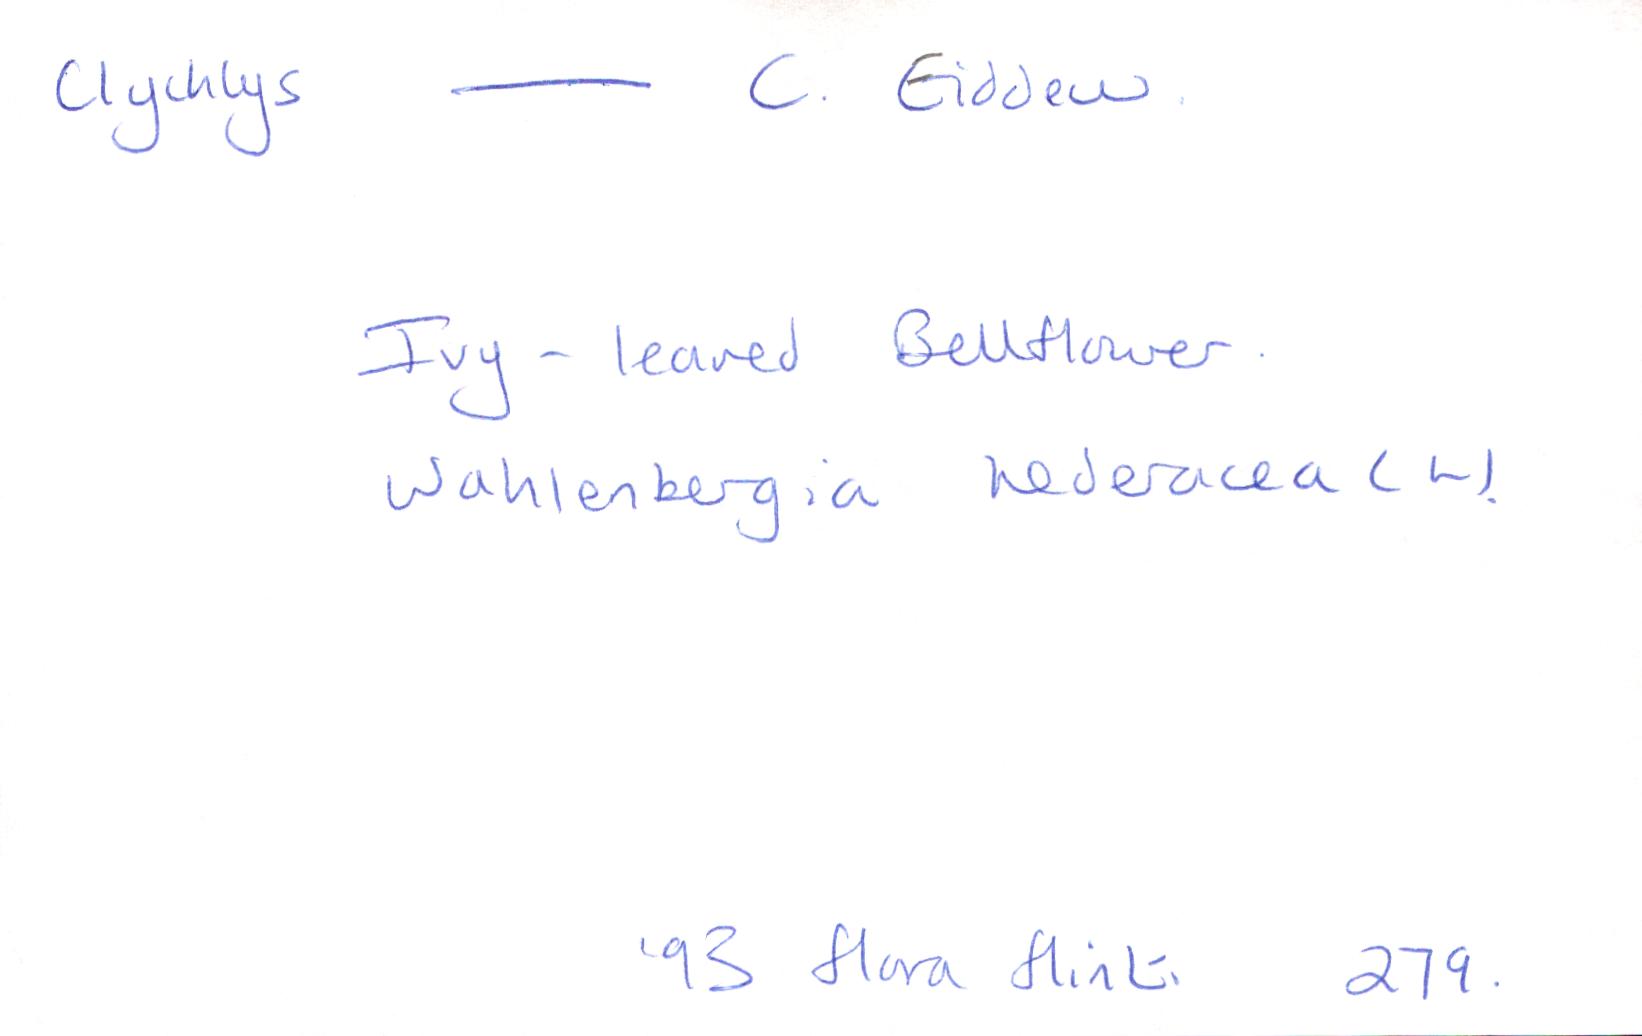 Clychlys — C. Eiddew.
Ivy-leaved Bellflower.
Wahlenbergia hederacea (L).
'93 flora flint. 279.